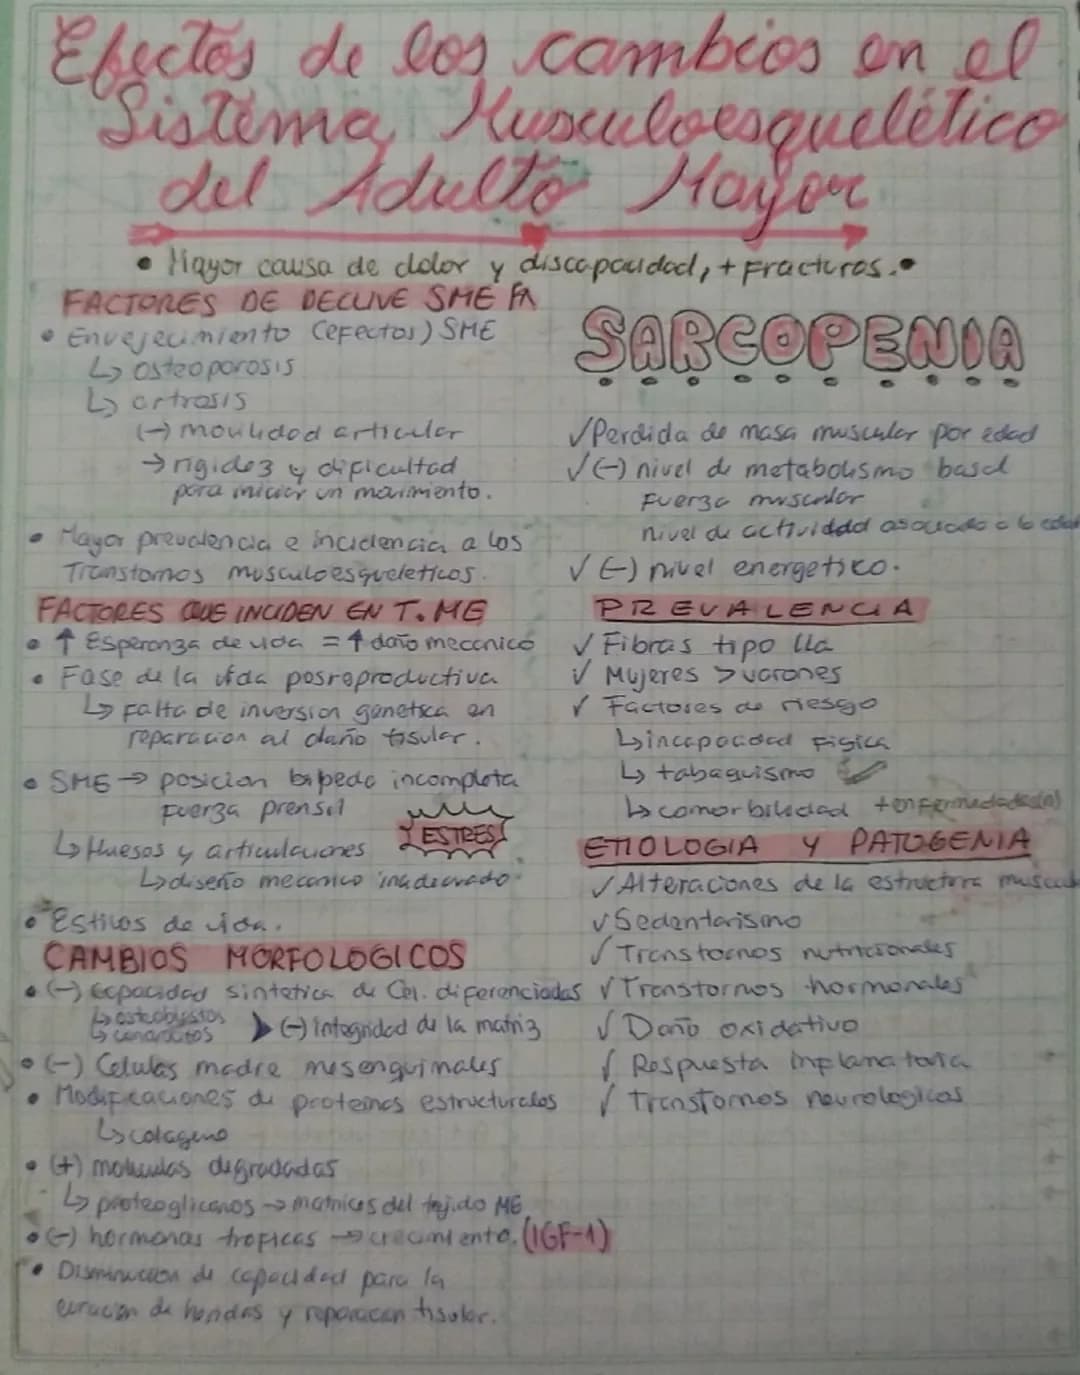 Efectos de los cambios en el
Sistema Musculoesquelético
del Adulto Mayor
• Mayor causa de dolor y discapacidad, + Fracturas.•
FACTORES DE DECLIVE SME
• Envejecimiento (efectos) SME
↳ osteoporosis
↳ artrosis
(-) movilidad articular
→ rigidez y dificultad
para iniciar un movimiento.
• Mayor prevalencia e incidencia a los
Transtornos musculoesqueleticos.
FACTORES QUE INCIDEN EN T. ME
• ↑ Esperanza de vida = ↑ daño mecanico
• Fase de la vida posreproductiva
↳ falta de inversion genetica en
reparacion al daño tisular.
• SME → posicion bipeda incompleta
Fuerza prensil
ESTRES
↳ Huesos y articulaciones
↳ diseño mecanico inadecuado
• Estilos de vida.
CAMBIOS MORFOLOGICOS
• (-) Capacidad sintetica de Cel. diferenciadas
↳ osteoblastos
↳ condrocitos
(-) integridad de la matriz
• (-) Celulas madre mesenquimales
• Modificaciones de proteinas estructurales
↳ colageno
• (+) moleculas degradadas
↳ proteoglicanos → matrices del tejido ME
• (-) hormonas tropicas → crecimiento. (IGF-1)
• Disminucion de capacidad para la
curacion de heridas y reparacion tisular.
SARCOPENIA
✓ Perdida de masa muscular por edad
✓ (-) nivel de metabolismo basal
Fuerza muscular
nivel de actividad asociado a la edad
✓ (-) nivel energetico.
PREVALENCIA
✓ Fibras tipo lla
✓ Mujeres > varones
✓ Factores de riesgo
↳ incapacidad Fisica
↳ tabaquismo
↳ comorbilidad + enfermedades(n)
ETIOLOGIA Y PATOGENIA
✓ Alteraciones de la estructura
✓ Sedentarismo
✓ Transtornos nutricionales
✓ Transtornos hormonales
✓ Daño oxidativo
✓ Respuesta inflamatoria
✓ Transtornos neurologicos